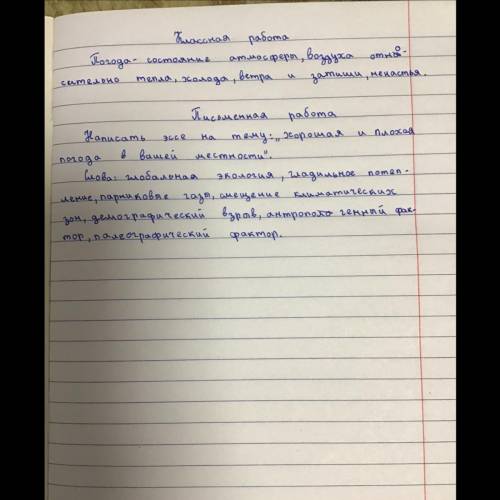 Классная работа
Погода- состояние атмосферы, воздуха отно-
сительно тепла, холода, ветра и затиши, ненастья.
Письменная работа
Написать эссе на тему: „Хорошая и плохая
погода в вашей местности".
Слова: глобальная экология, гладильное потеп-
ление, парниковые газы, смещение климатических
зон, демографический взрыв, антропологенный фак-
тор, палеографический фактор.